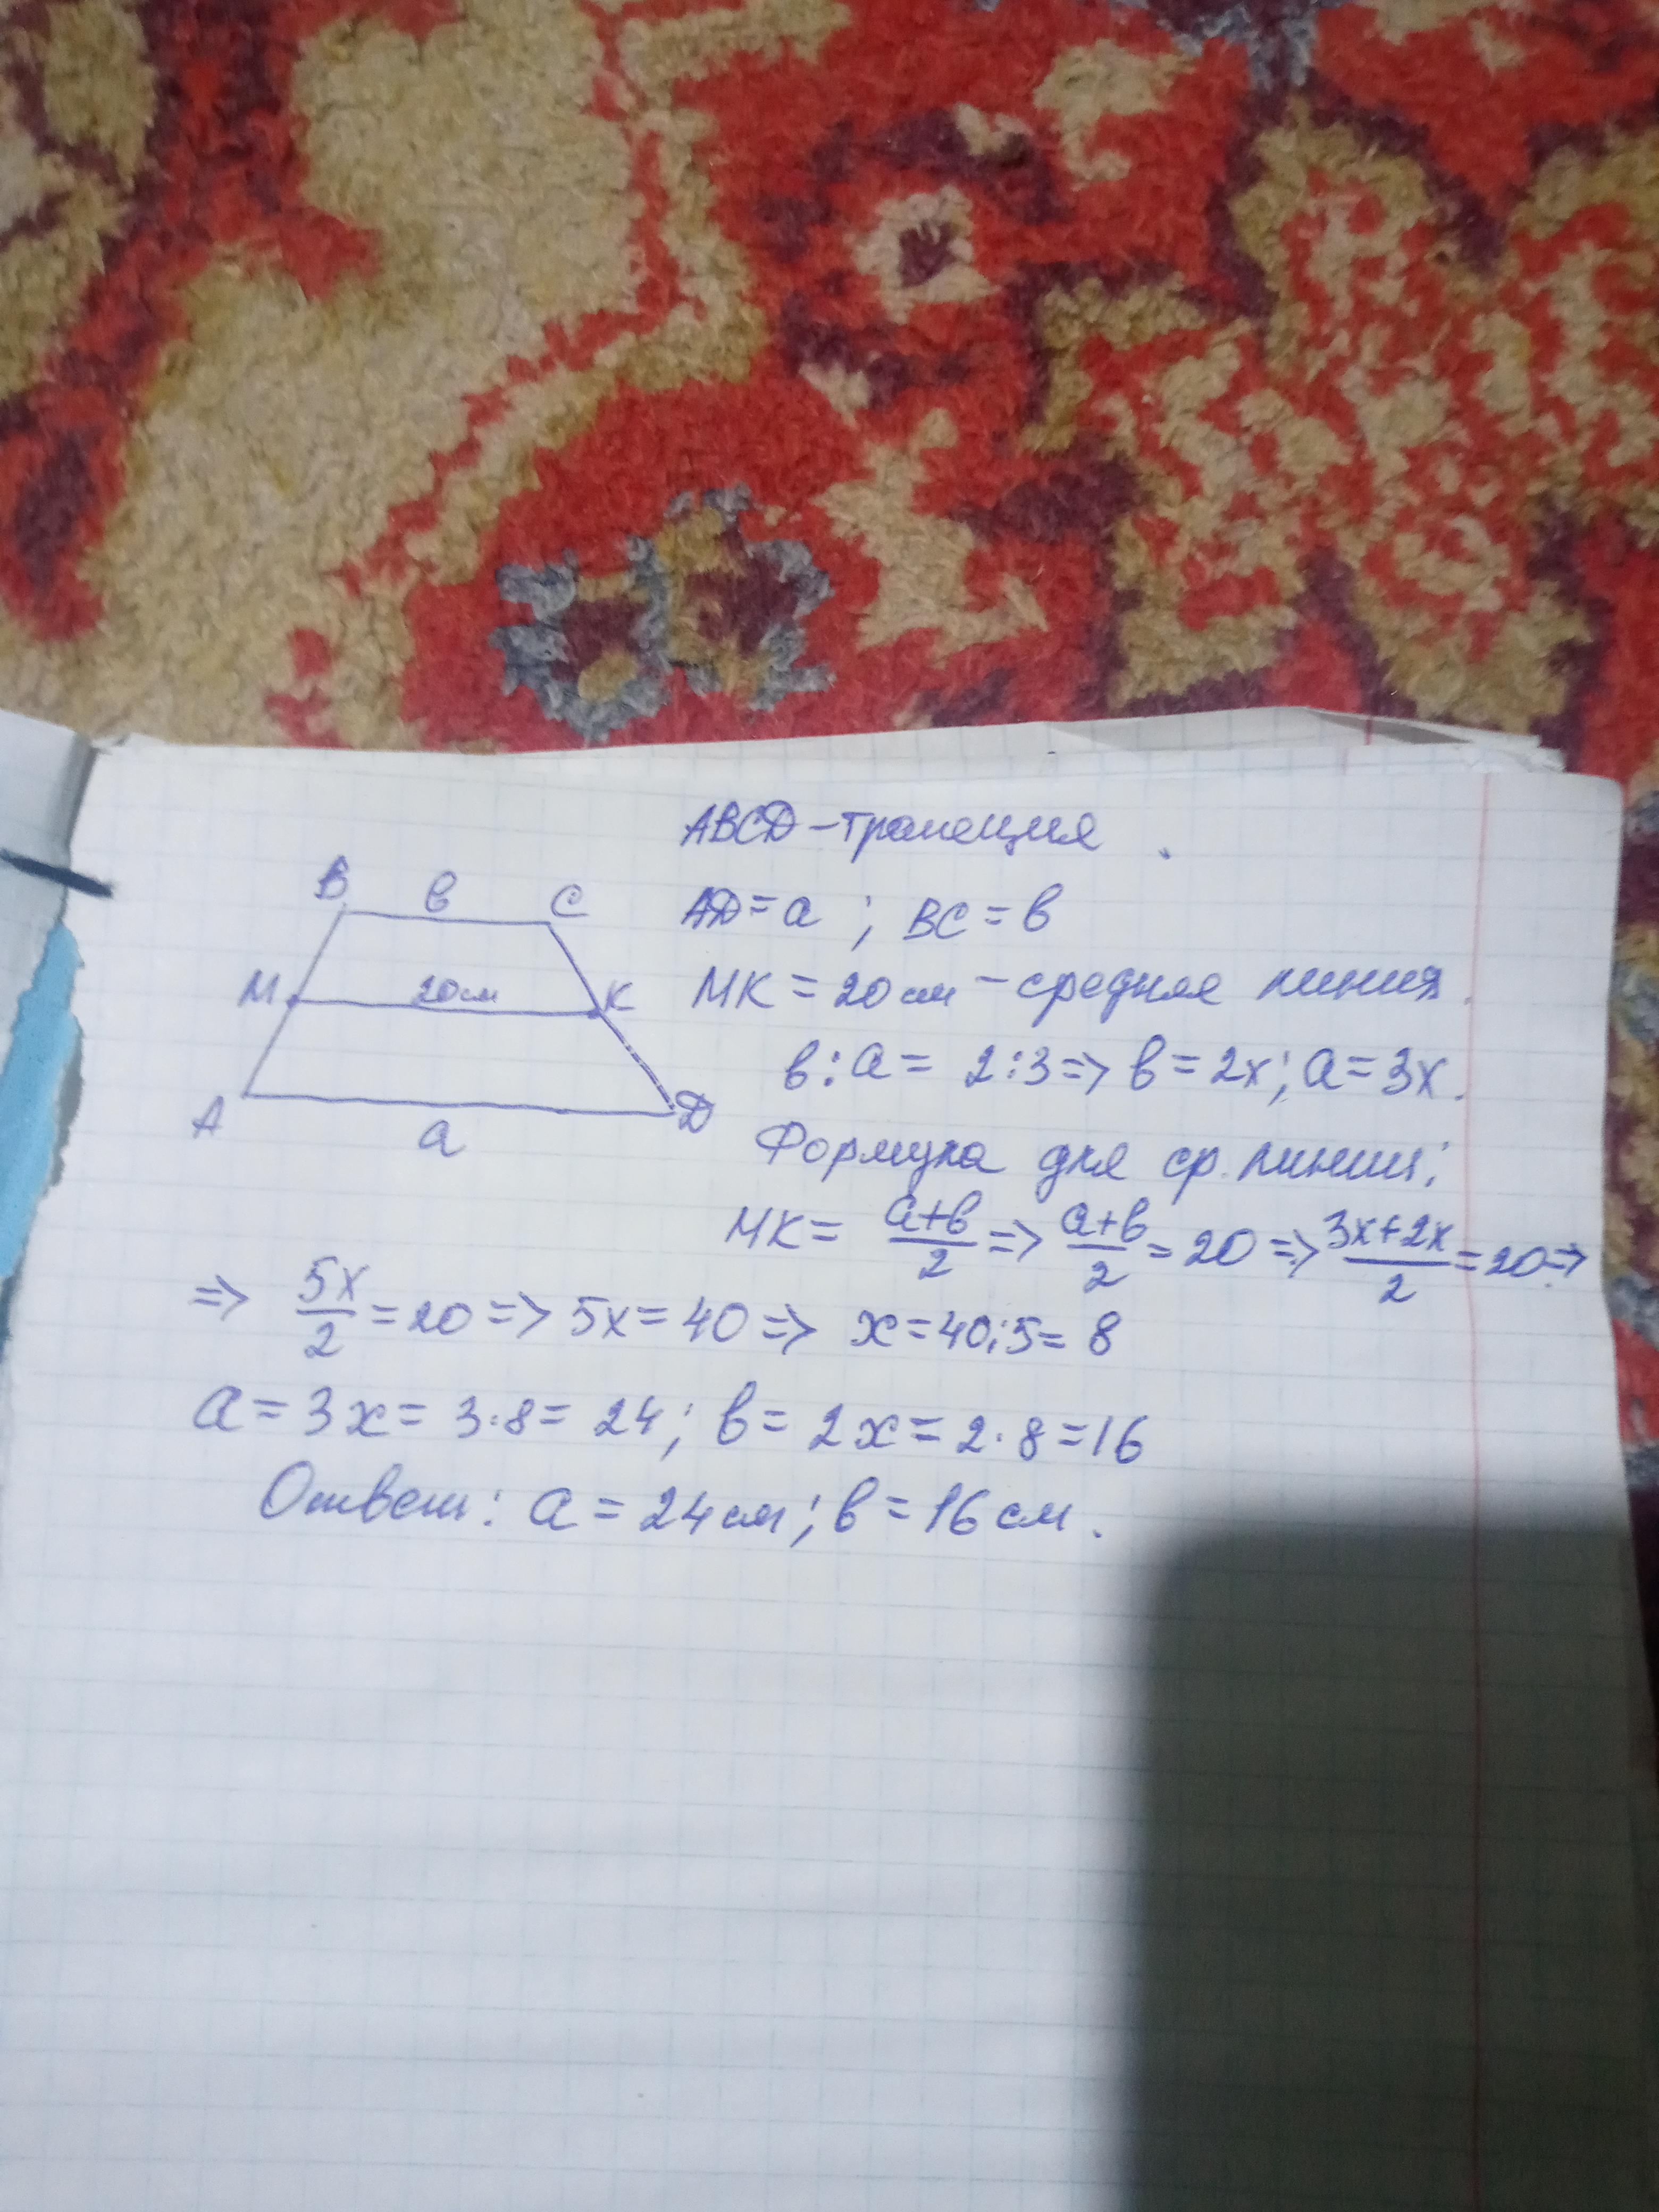 ABCD – трапеция.
B в C
AD = a ; BC = в
M 20 см K
MK = 20 см – средняя линия.
в : a = 2 : 3 => в = 2x; a = 3x.
A a D
Формула для ср. линии:
MK = (a+в)/2 => (a+в)/2 = 20 => (3x+2x)/2 = 20 =>
=> 5x/2 = 20 => 5x = 40 => x = 40:5 = 8
a = 3x = 3·8 = 24; в = 2x = 2·8 = 16
Ответ: a = 24 см; в = 16 см.